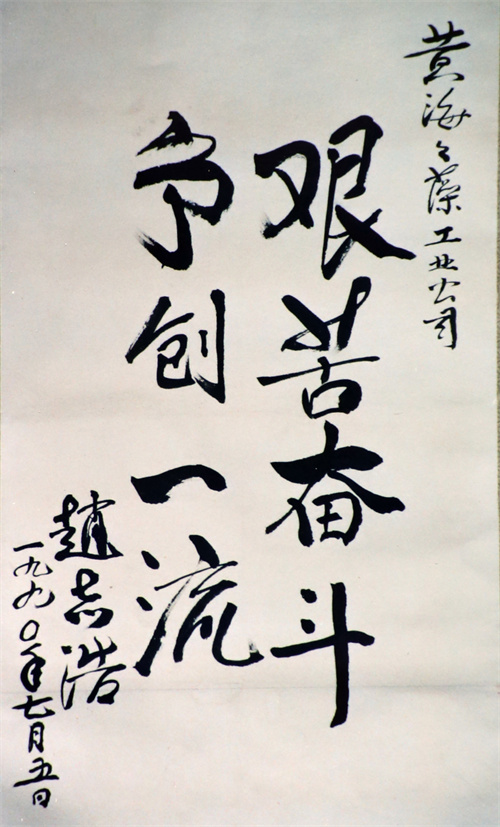 黄海海藻工业公司
艰苦奋斗
争创一流
趙志浩
一九九〇年七月五日